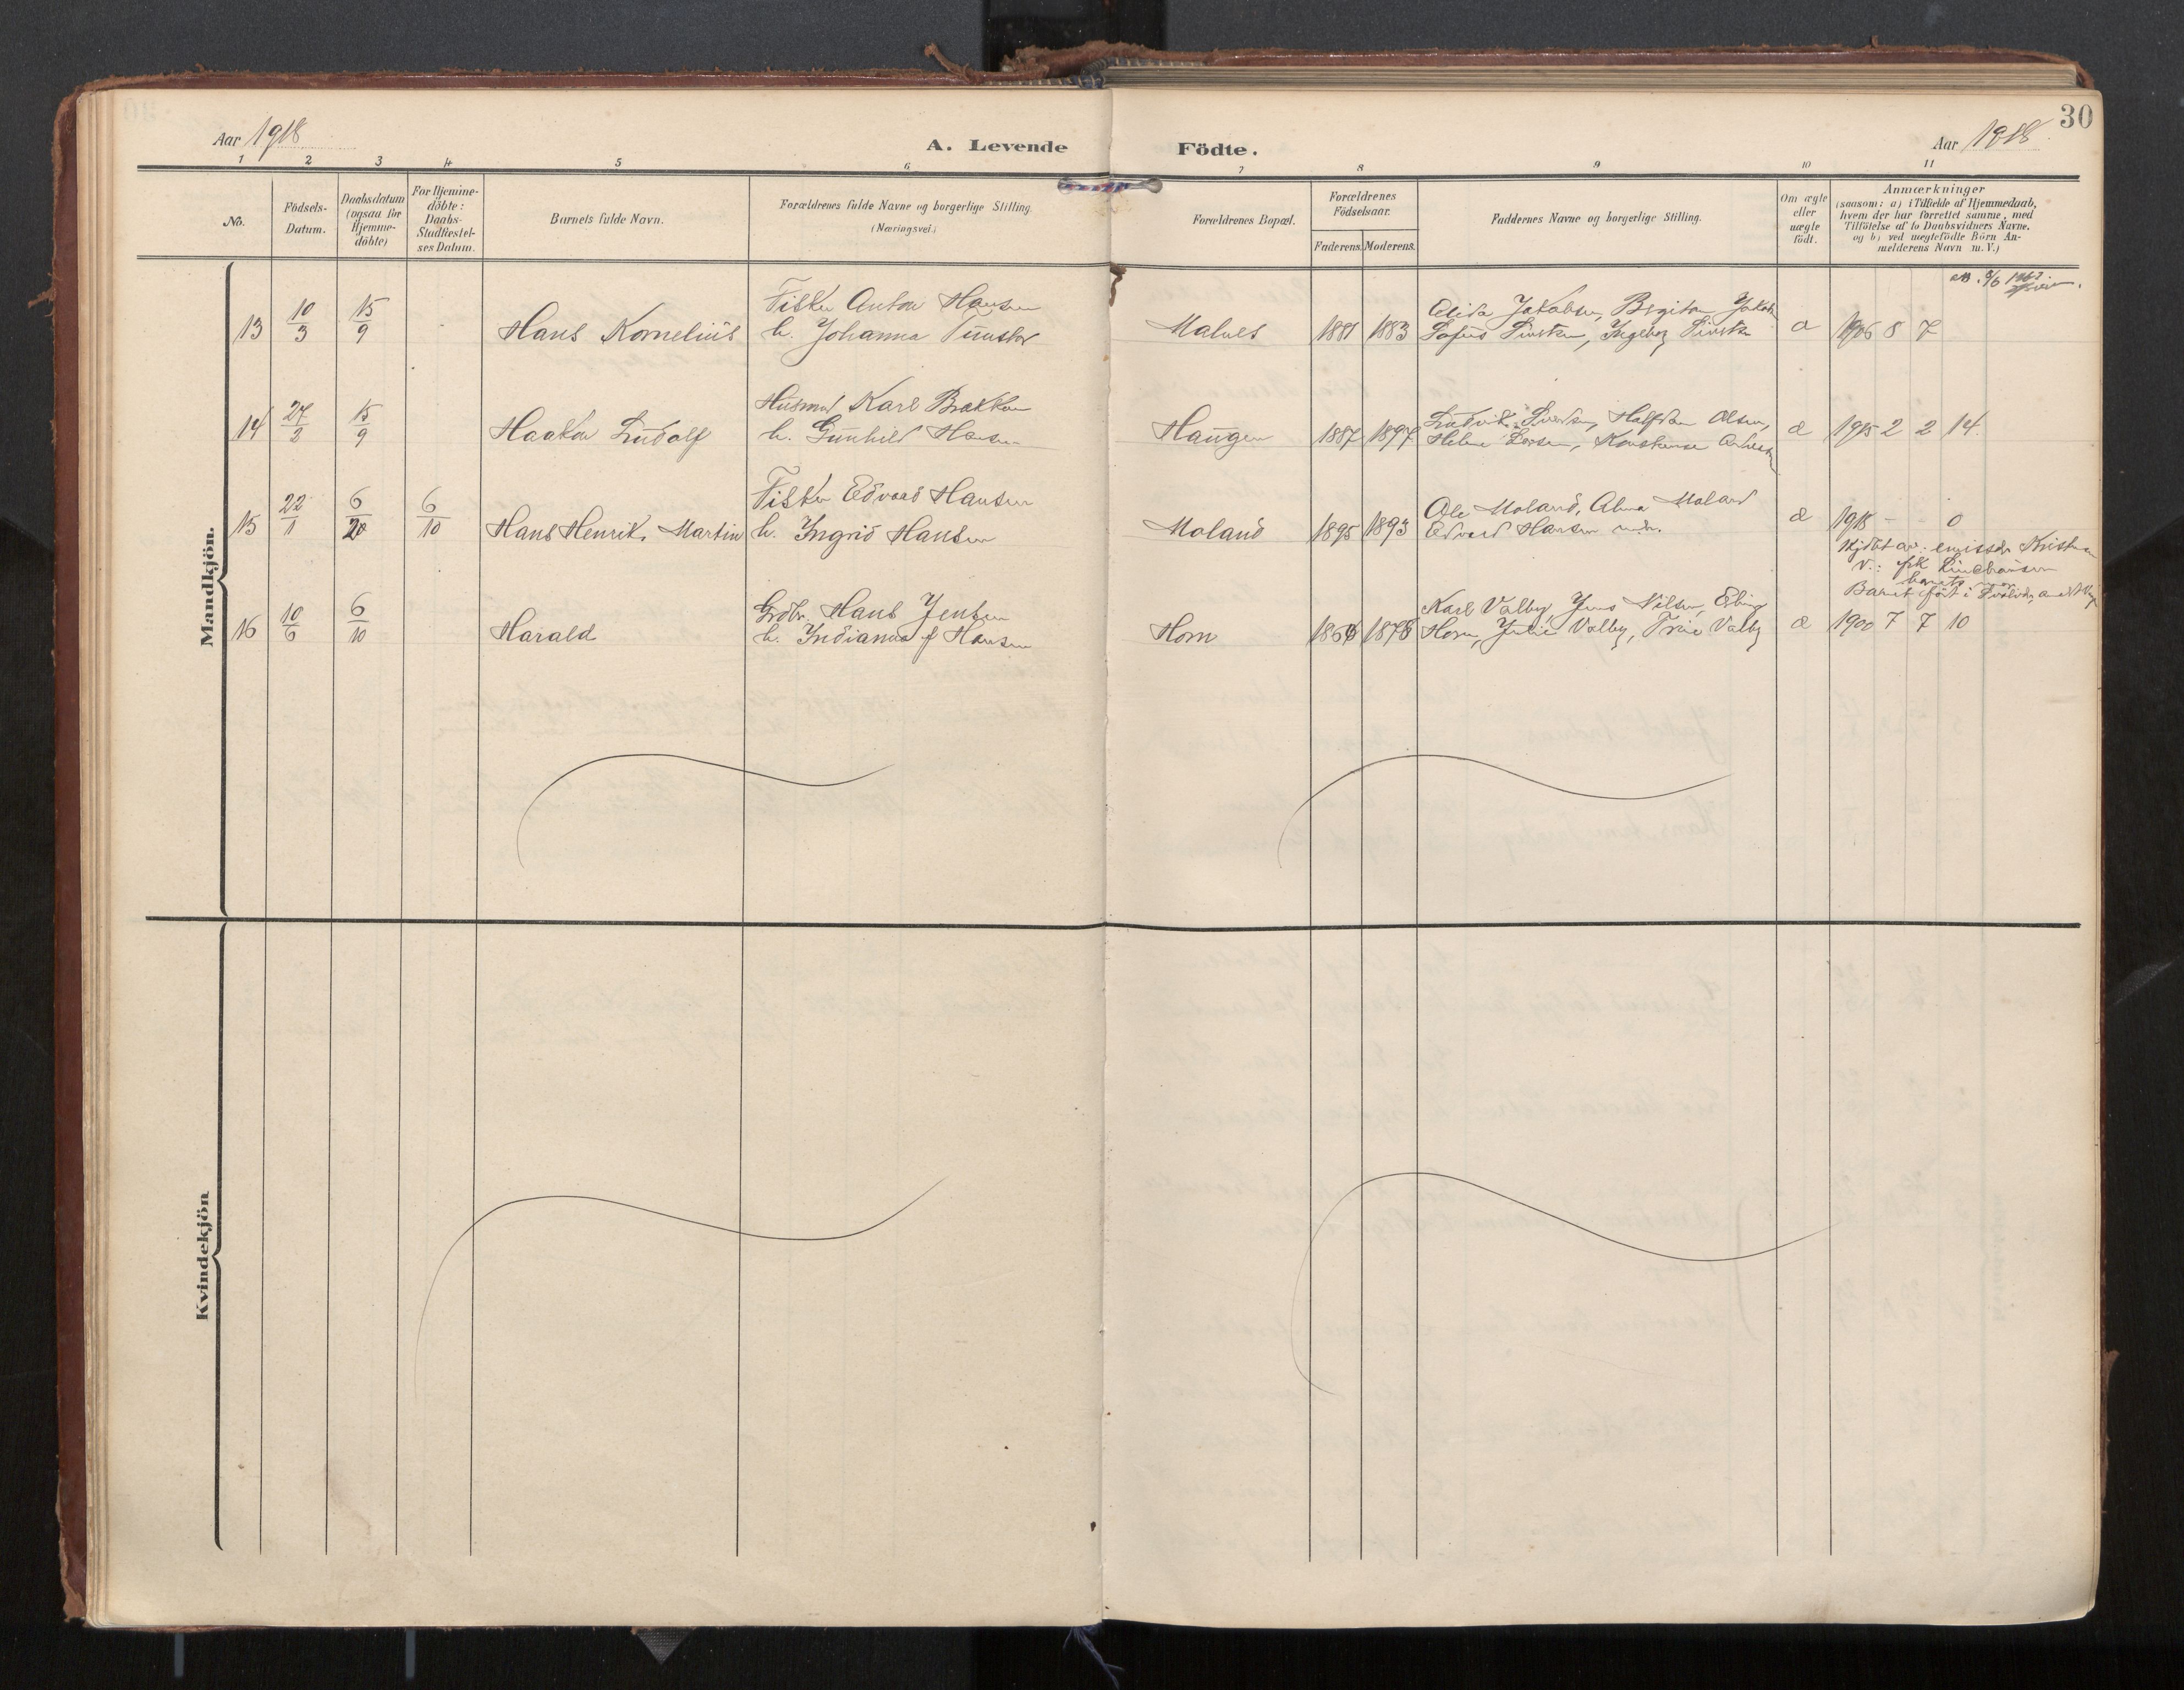 30
Aar 1918
A. Levende Födte.
Aar 1918
1 2 3 4 5 6 7 8 9 10 11
No.
Födsels-
Datum.
Daabsdatum
(ogsaa for
Hjemme-
döbte)
For Hjemme-
döbte:
Daabs-
Stadfæstel-
ses Datum.
Barnets fulde Navn.
Forældrenes fulde Navne og borgerlige Stilling.
(Næringsvei.)
Forældrenes Bopæl.
Forældrenes
Födselsaar.
Faderens. Moderens.
Faddernes Navne og borgerlige Stilling.
Om ægte
eller
uægte
födt.
Anmærkninger
(saasom: a) i Tilfælde af Hjemmedaab,
hvem der har forrettet samme, med
Tilföielse af to Daabsvidners Navne,
og b) ved uægtefödte Börn An-
melderens Navn m. V.)
Mandkjön.
13 10/3 15/9 Hans Kornelius
Fisker Anton Hansen
h. Johanna
Malnes 1881 1883
Alida Jakobsen, Birgitte
Sofus Ingeborg
1906 8 7
14 27/2 15/9 Haakon Ludolf
Husmd Karl Brækkan
h. Gunhild Hansen
Haugen 1887 1897
Ludvik Halfdan Olsen,
Helene Larsen,
æ 1915 2 2 14
15 22/1 6/10 Hans Henrik Martin
Fisker Edvard Hansen
h. Ingrid Hansen
Moland 1895 1893
Ole Moland, Alma Moland
Edvard Hansen
æ 1918 - - 0
Hjdbt av: emissær
Barnet födt i
16 10/6 6/10 Harald
Grdbr. Hans Jensen
h. Indianna f Hansen
Horn
Karl Valby, Jens Nilsen,
Horn, Julie Valby, Valby
æ 1900 7 7 10
Kvindekjön